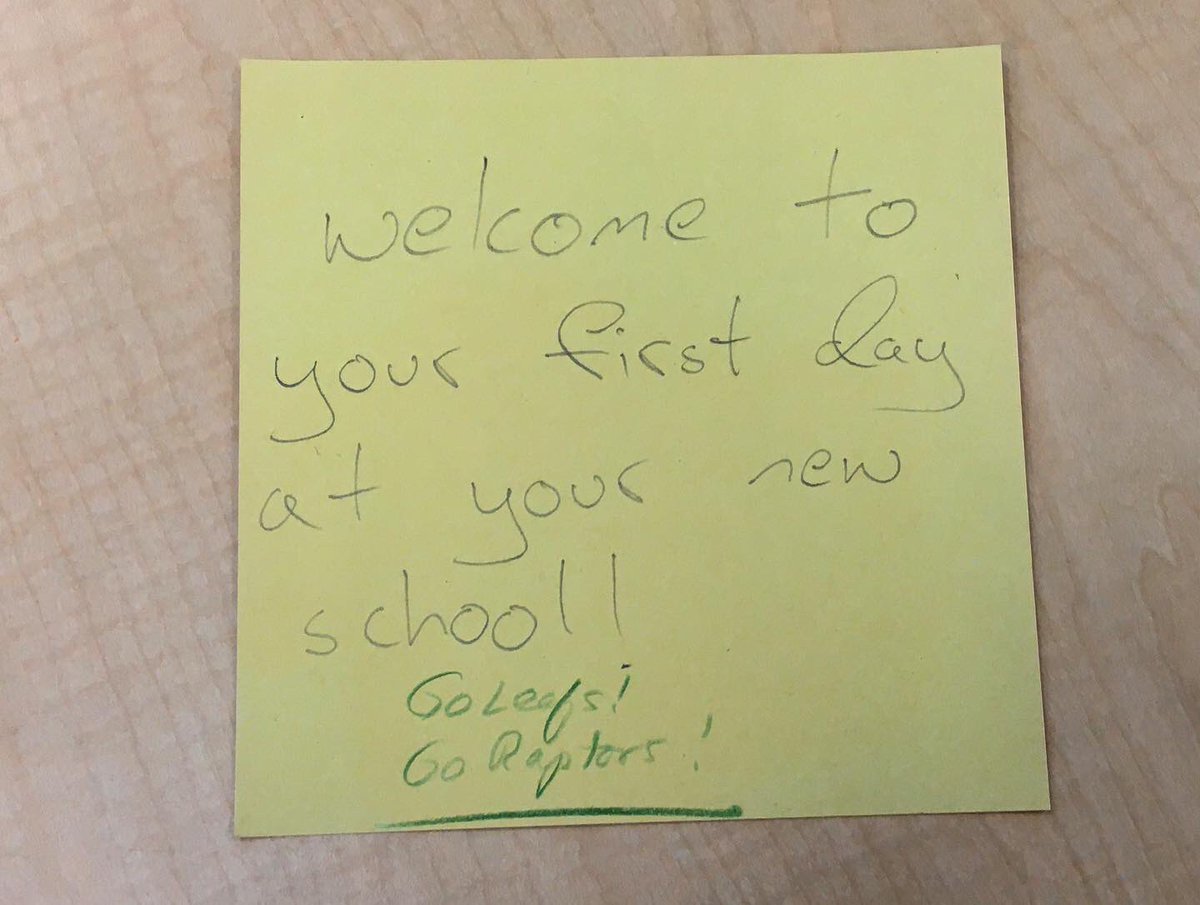 welcome to
your first day
at your new
school!
Go Leafs!
Go Raptors!